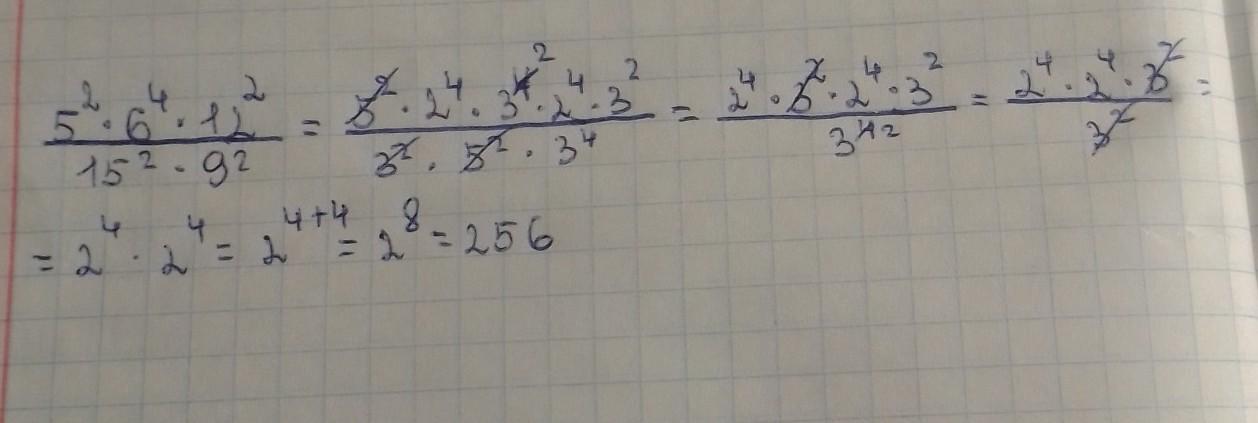 5² · 6⁴ · 12² / 15² · 9² = 5² · 2⁴ · 3⁴ ² · 2⁴ · 3² / 3² · 5² · 3⁴ = 2⁴ · 3² · 2⁴ · 3² / 3⁴ ² = 2⁴ · 2⁴ · 3² / 3² =
= 2⁴ · 2⁴ = 2⁴⁺⁴ = 2⁸ = 256